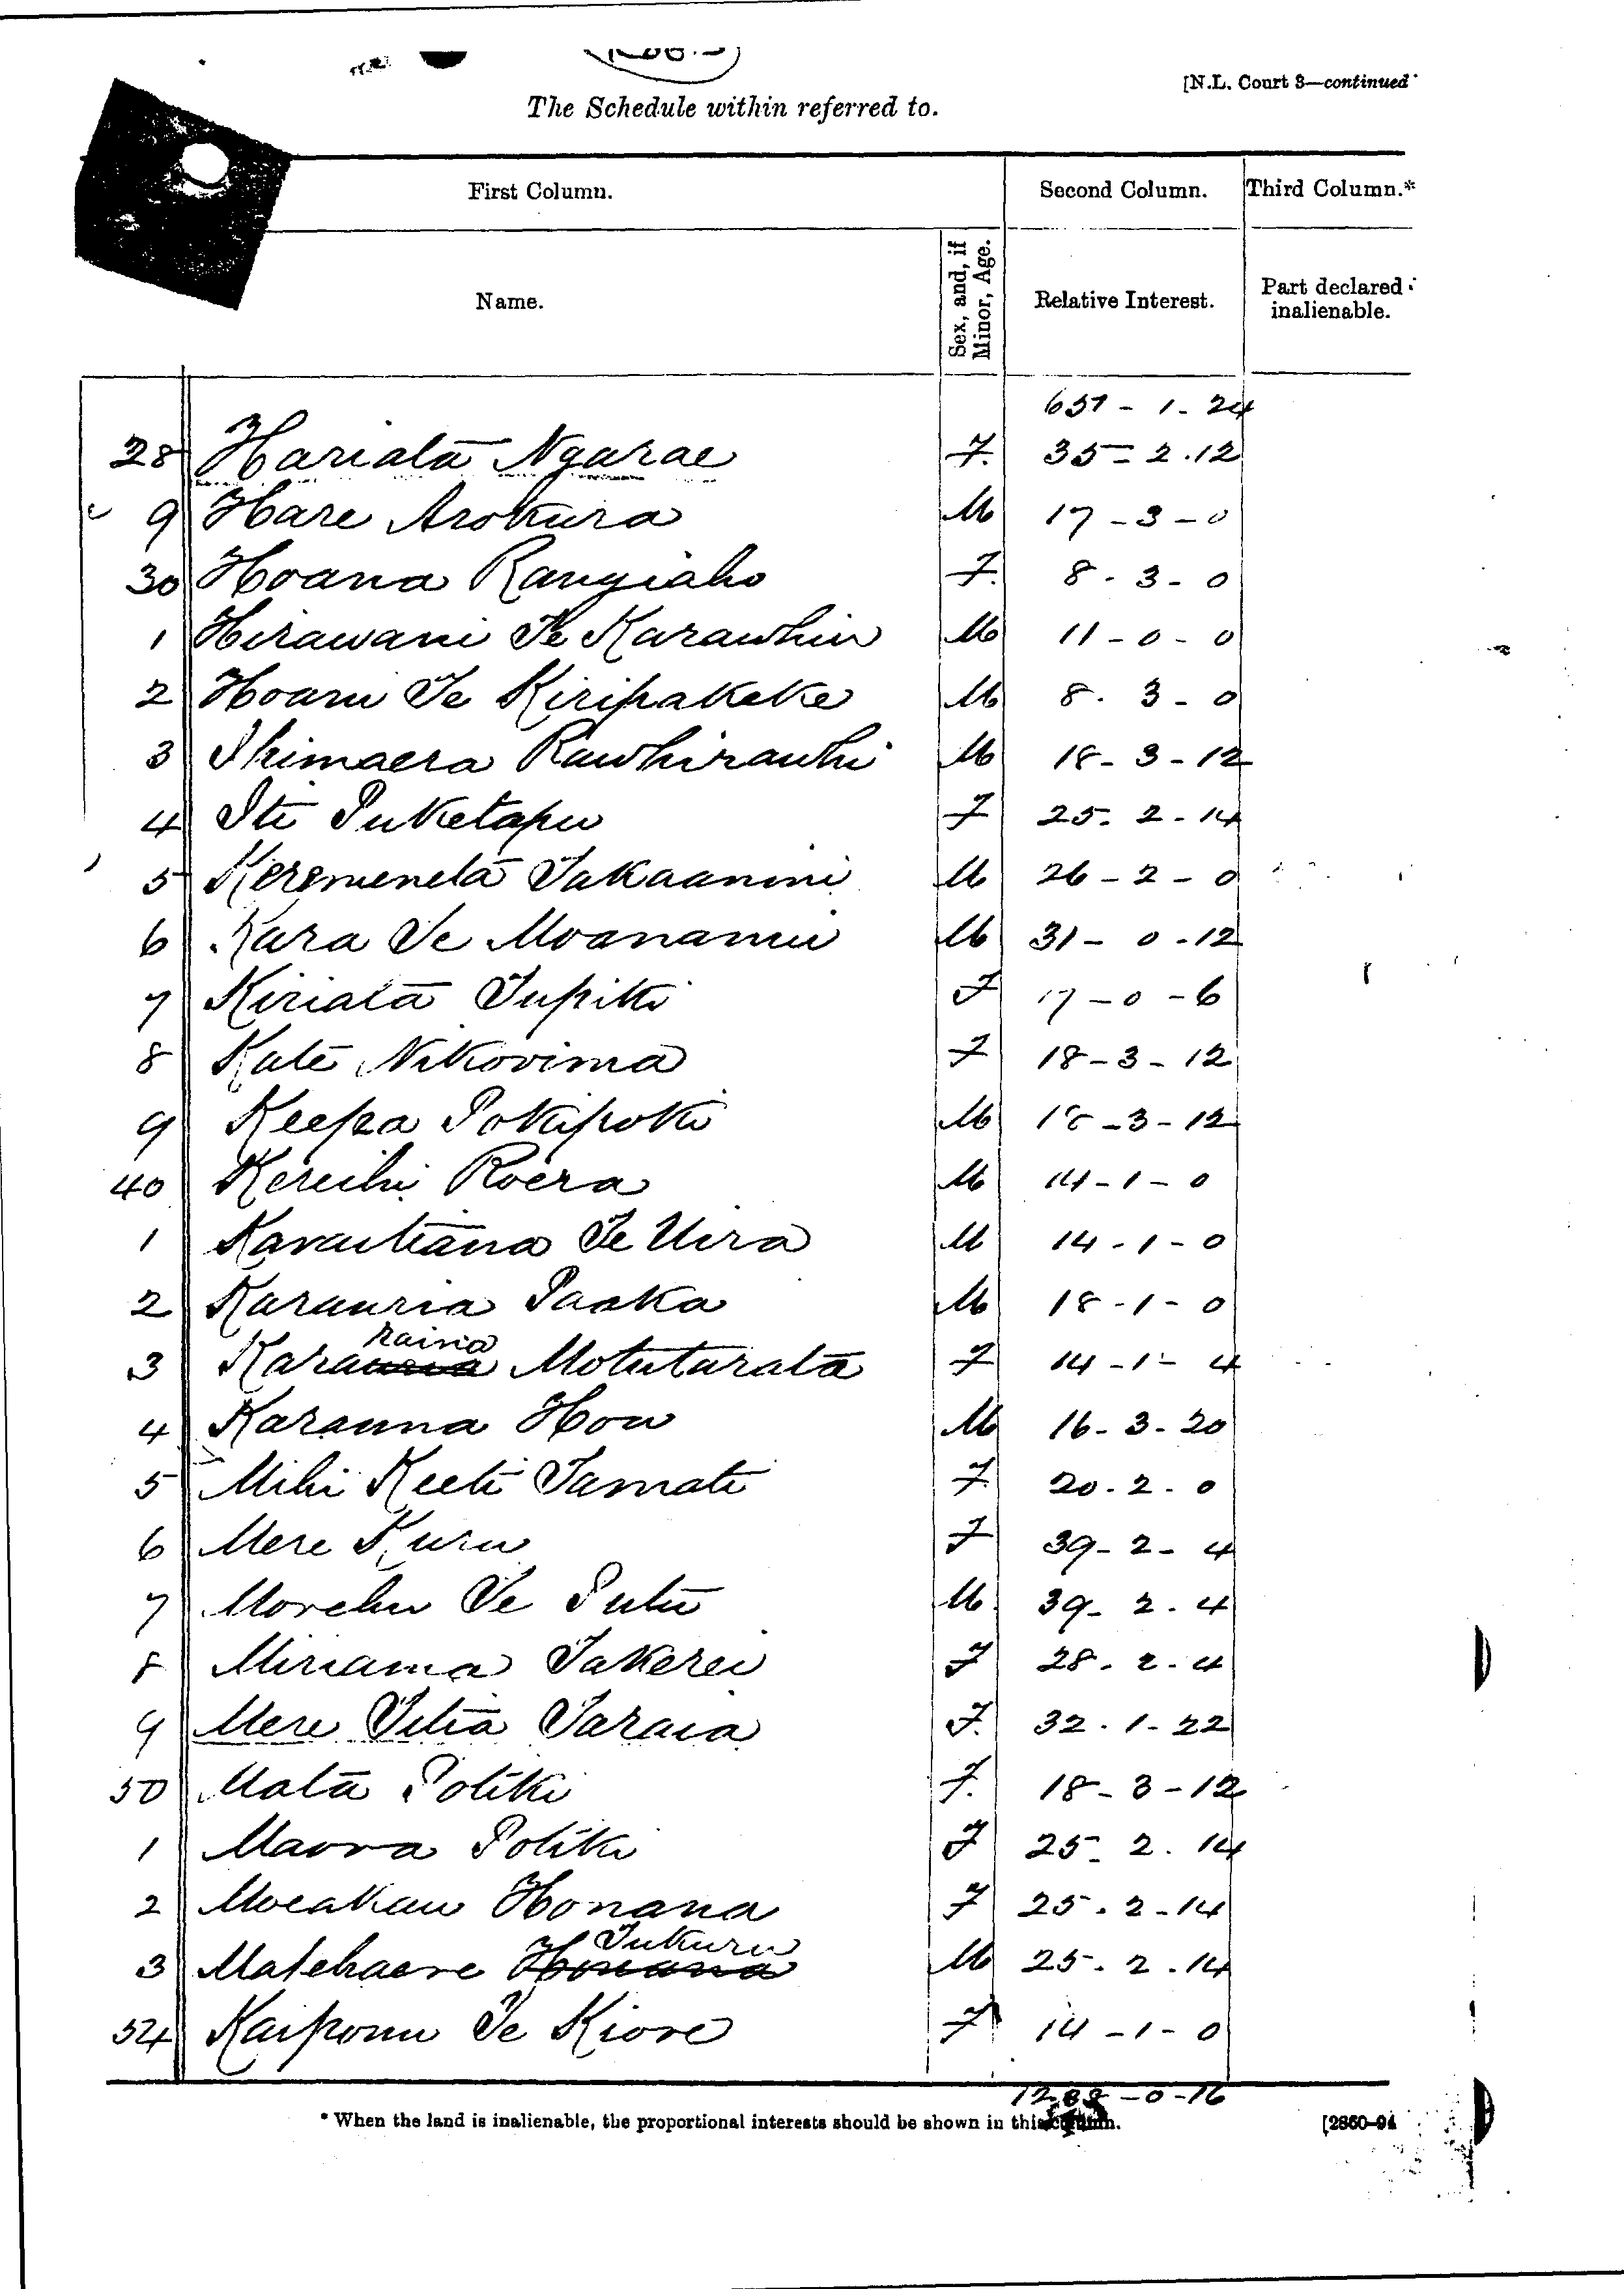 [N.L. Court 3—continued
The Schedule within referred to.
First Column. Second Column. Third Column.*
Name. Sex, and, if Minor, Age. Relative Interest. Part declared inalienable.
657 - 1 - 24
28 Hariata Ngarae F. 35 - 2 . 12
9 Hare Arokura M 17 - 3 - 0
30 Hoana Rangiaho F. 8 - 3 - 0
1 Hirawani Te Karawhiu M 11 - 0 - 0
2 Hoani Te Kiripakeke M 8 . 3 - 0
3 Ihimaera Rawhirawhi M 18 - 3 - 12
4 Iti Puketapu F 25 . 2 - 14
5 Keremeneta Takaanini M 26 - 2 - 0
6 Kara Te Moananui M 31 - 0 - 12
7 Kiriata Tupitti F 17 - 0 - 6
8 Kate Nikovima F 18 - 3 - 12
9 Keepa Pokipoki M 18 - 3 - 12
40 Kereihi Roera M 14 - 1 - 0
1 Karaitiana Te Uira M 14 - 1 - 0
2 Karauria Paaka M 18 - 1 - 0
raina
3 Karauria Motutarata F 14 - 1 - 4
4 Karauna Hou M 16 - 3 - 20
5 Mihi Keeti Tamati F. 20 . 2 . 0
6 Mere Kuru F 39 - 2 - 4
7 Morehu Te Putu M. 39 - 2 . 4
8 Miriama Takerei F 28 . 2 . 4
9 Mere Titia Taraia F. 32 . 1 - 22
50 Mata Potiki F. 18 - 3 - 12
1 Maora Potiki F 25 . 2 . 14
2 Moeakau Honana F 25 . 2 - 14
Tukuru
3 Matehaere Honana M 25 . 2 . 14
54 Kaiponu Te Kiore F 14 - 1 - 0
- 0 - 16
* When the land is inalienable, the proportional interests should be shown in this column. [2860–94